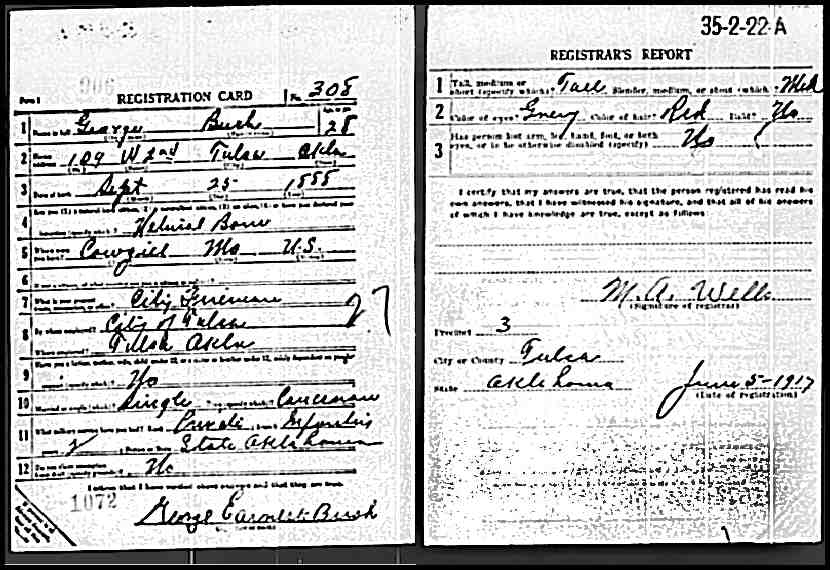 906
Form 1 REGISTRATION CARD No. 308
1 Name in full George Bush 28
2 Home address 109 W 2nd Tulsa Okla
3 Date of birth Sept 25 1888
4 Natural Born
5 Where were you born? Cowgill Mo U.S.
6
7 What is your present City Fireman 27
8 By whom employed? City of Tulsa
Where employed? Tulsa Okla
9 No
10 Married or single (which)? Single Race (specify which)? Caucasian
11 What military service have you had? Rank Private; branch Infantry
years 2; Nation or State State Oklahoma
12 Do you claim exemption No
I affirm that I have verified above answers and that they are true.
1072
George Bush
35-2-22 A
REGISTRAR'S REPORT
1 Tall, medium, or short (specify which)? Tall Slender, medium, or stout (which)? Med
2 Color of eyes? Grey Color of hair? Red Bald? No
3 Has person lost arm, leg, hand, foot, or both eyes, or is he otherwise disabled (specify)? No
I certify that my answers are true, that the person registered has read his
own answers, that I have witnessed his signature, and that all of his answers
of which I have knowledge are true, except as follows:
M. A. Wells
(Signature of registrar)
Precinct 3
City or County Tulsa
State Oklahoma June 5-1917
(Date of registration)